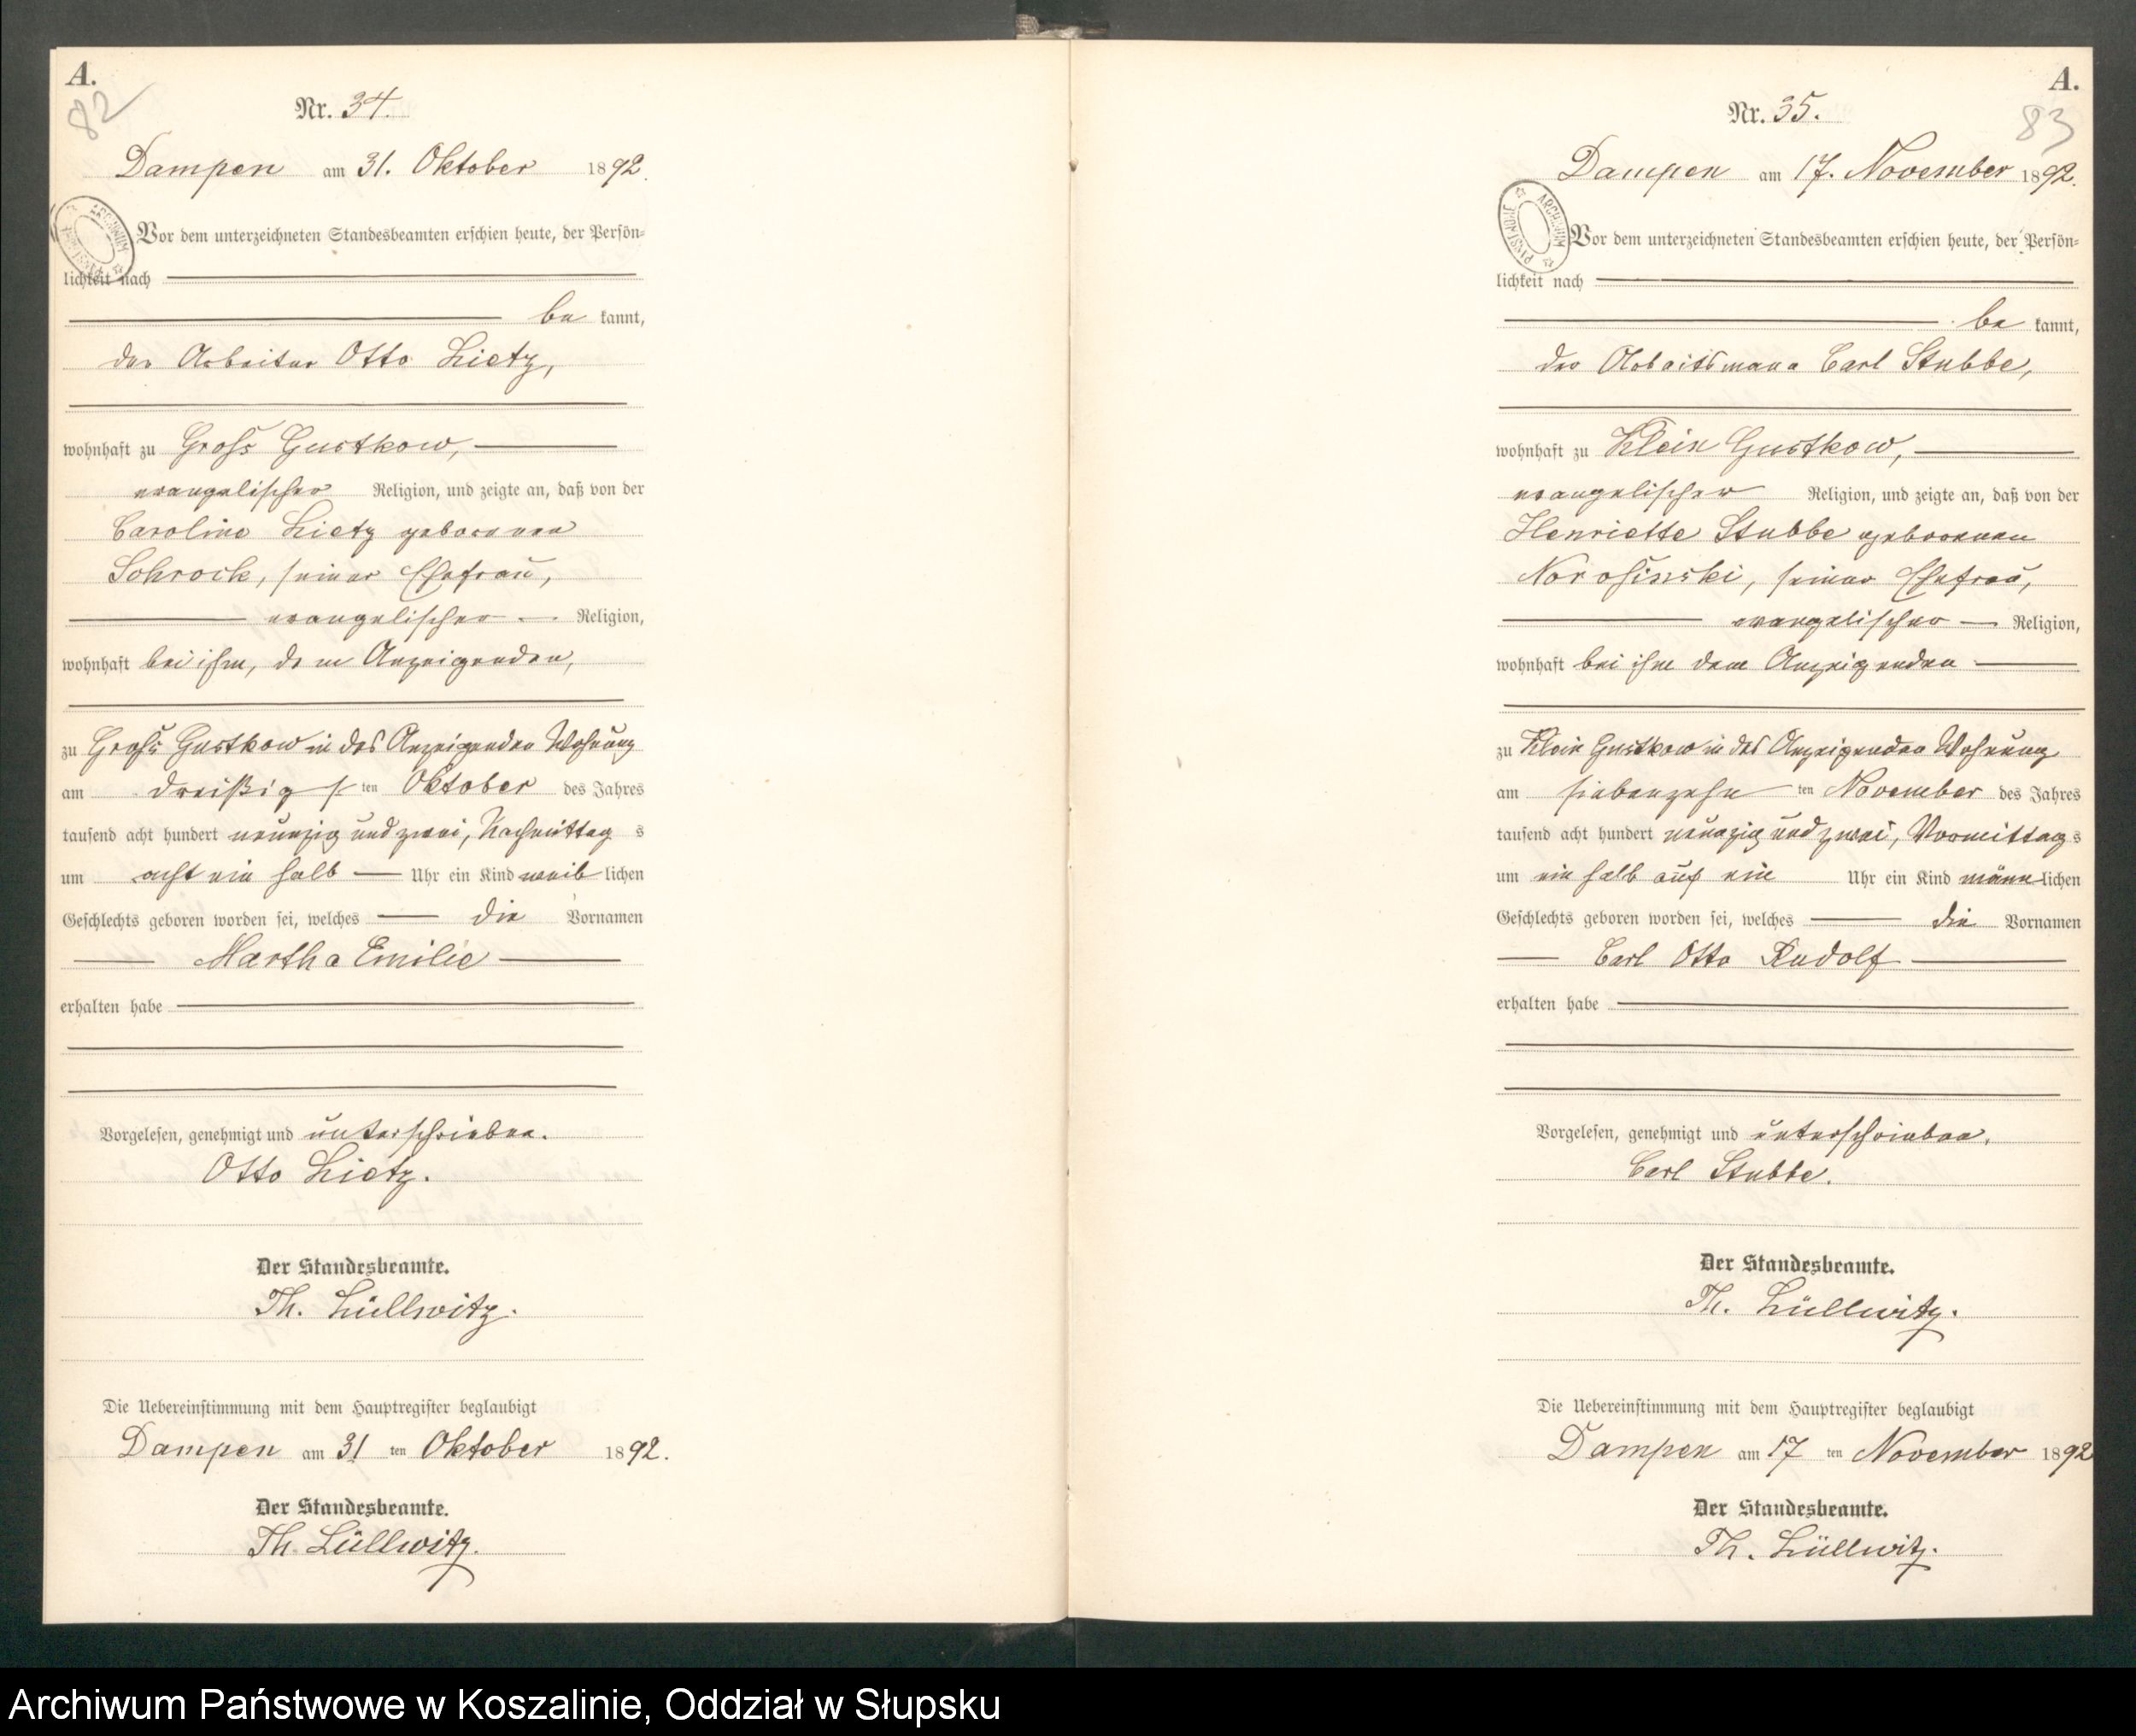 A.
82
Nr. 34.
Dampen am 31. Oktober 1892.
ARCHIWUM PAŃSTWOWE
Vor dem unterzeichneten Standesbeamten erschien heute, der Persön=
lichkeit nach
be kannt,
der Arbeiter Otto Lietz,
wohnhaft zu Gross Gustkow,
evangelischer Religion, und zeigte an, daß von der
Caroline Lietz geborenen
Schrock, seiner Ehefrau,
evangelischer Religion,
wohnhaft bei ihm, dem Anzeigenden,
zu Gross Gustkow in des Anzeigenden Wohnung
am dreißigsten Oktober des Jahres
tausend acht hundert neunzig und zwei, Nachmittag s
um acht ein halb Uhr ein Kind weib lichen
Geschlechts geboren worden sei, welches die Vornamen
Martha Emilie
erhalten habe
Vorgelesen, genehmigt und unterschrieben.
Otto Lietz.
Der Standesbeamte.
Th. Lüllwitz.
Die Uebereinstimmung mit dem Hauptregister beglaubigt
Dampen am 31 ten Oktober 1892.
Der Standesbeamte.
Th. Lüllwitz.
A.
83
Nr. 35.
Dampen am 17. November 1892.
ARCHIWUM PAŃSTWOWE
Vor dem unterzeichneten Standesbeamten erschien heute, der Persön=
lichkeit nach
be kannt,
der Arbeitsmann Carl Stubbe,
wohnhaft zu Klein Gustkow,
evangelischer Religion, und zeigte an, daß von der
Henriette Stubbe geborenen
seiner Ehefrau,
evangelischer Religion,
wohnhaft bei ihm dem Anzeigenden
zu Klein Gustkow in des Anzeigenden Wohnung
am siebenzehn ten November des Jahres
tausend acht hundert neunzig und zwei, Vormittag s
um ein halb auf ein Uhr ein Kind männ lichen
Geschlechts geboren worden sei, welches die Vornamen
Carl Otto Rudolf
erhalten habe
Vorgelesen, genehmigt und unterschrieben.
Carl Stubbe.
Der Standesbeamte.
Th. Lüllwitz.
Die Uebereinstimmung mit dem Hauptregister beglaubigt
Dampen am 17 ten November 1892
Der Standesbeamte.
Th. Lüllwitz.
Archiwum Państwowe w Koszalinie, Oddział w Słupsku